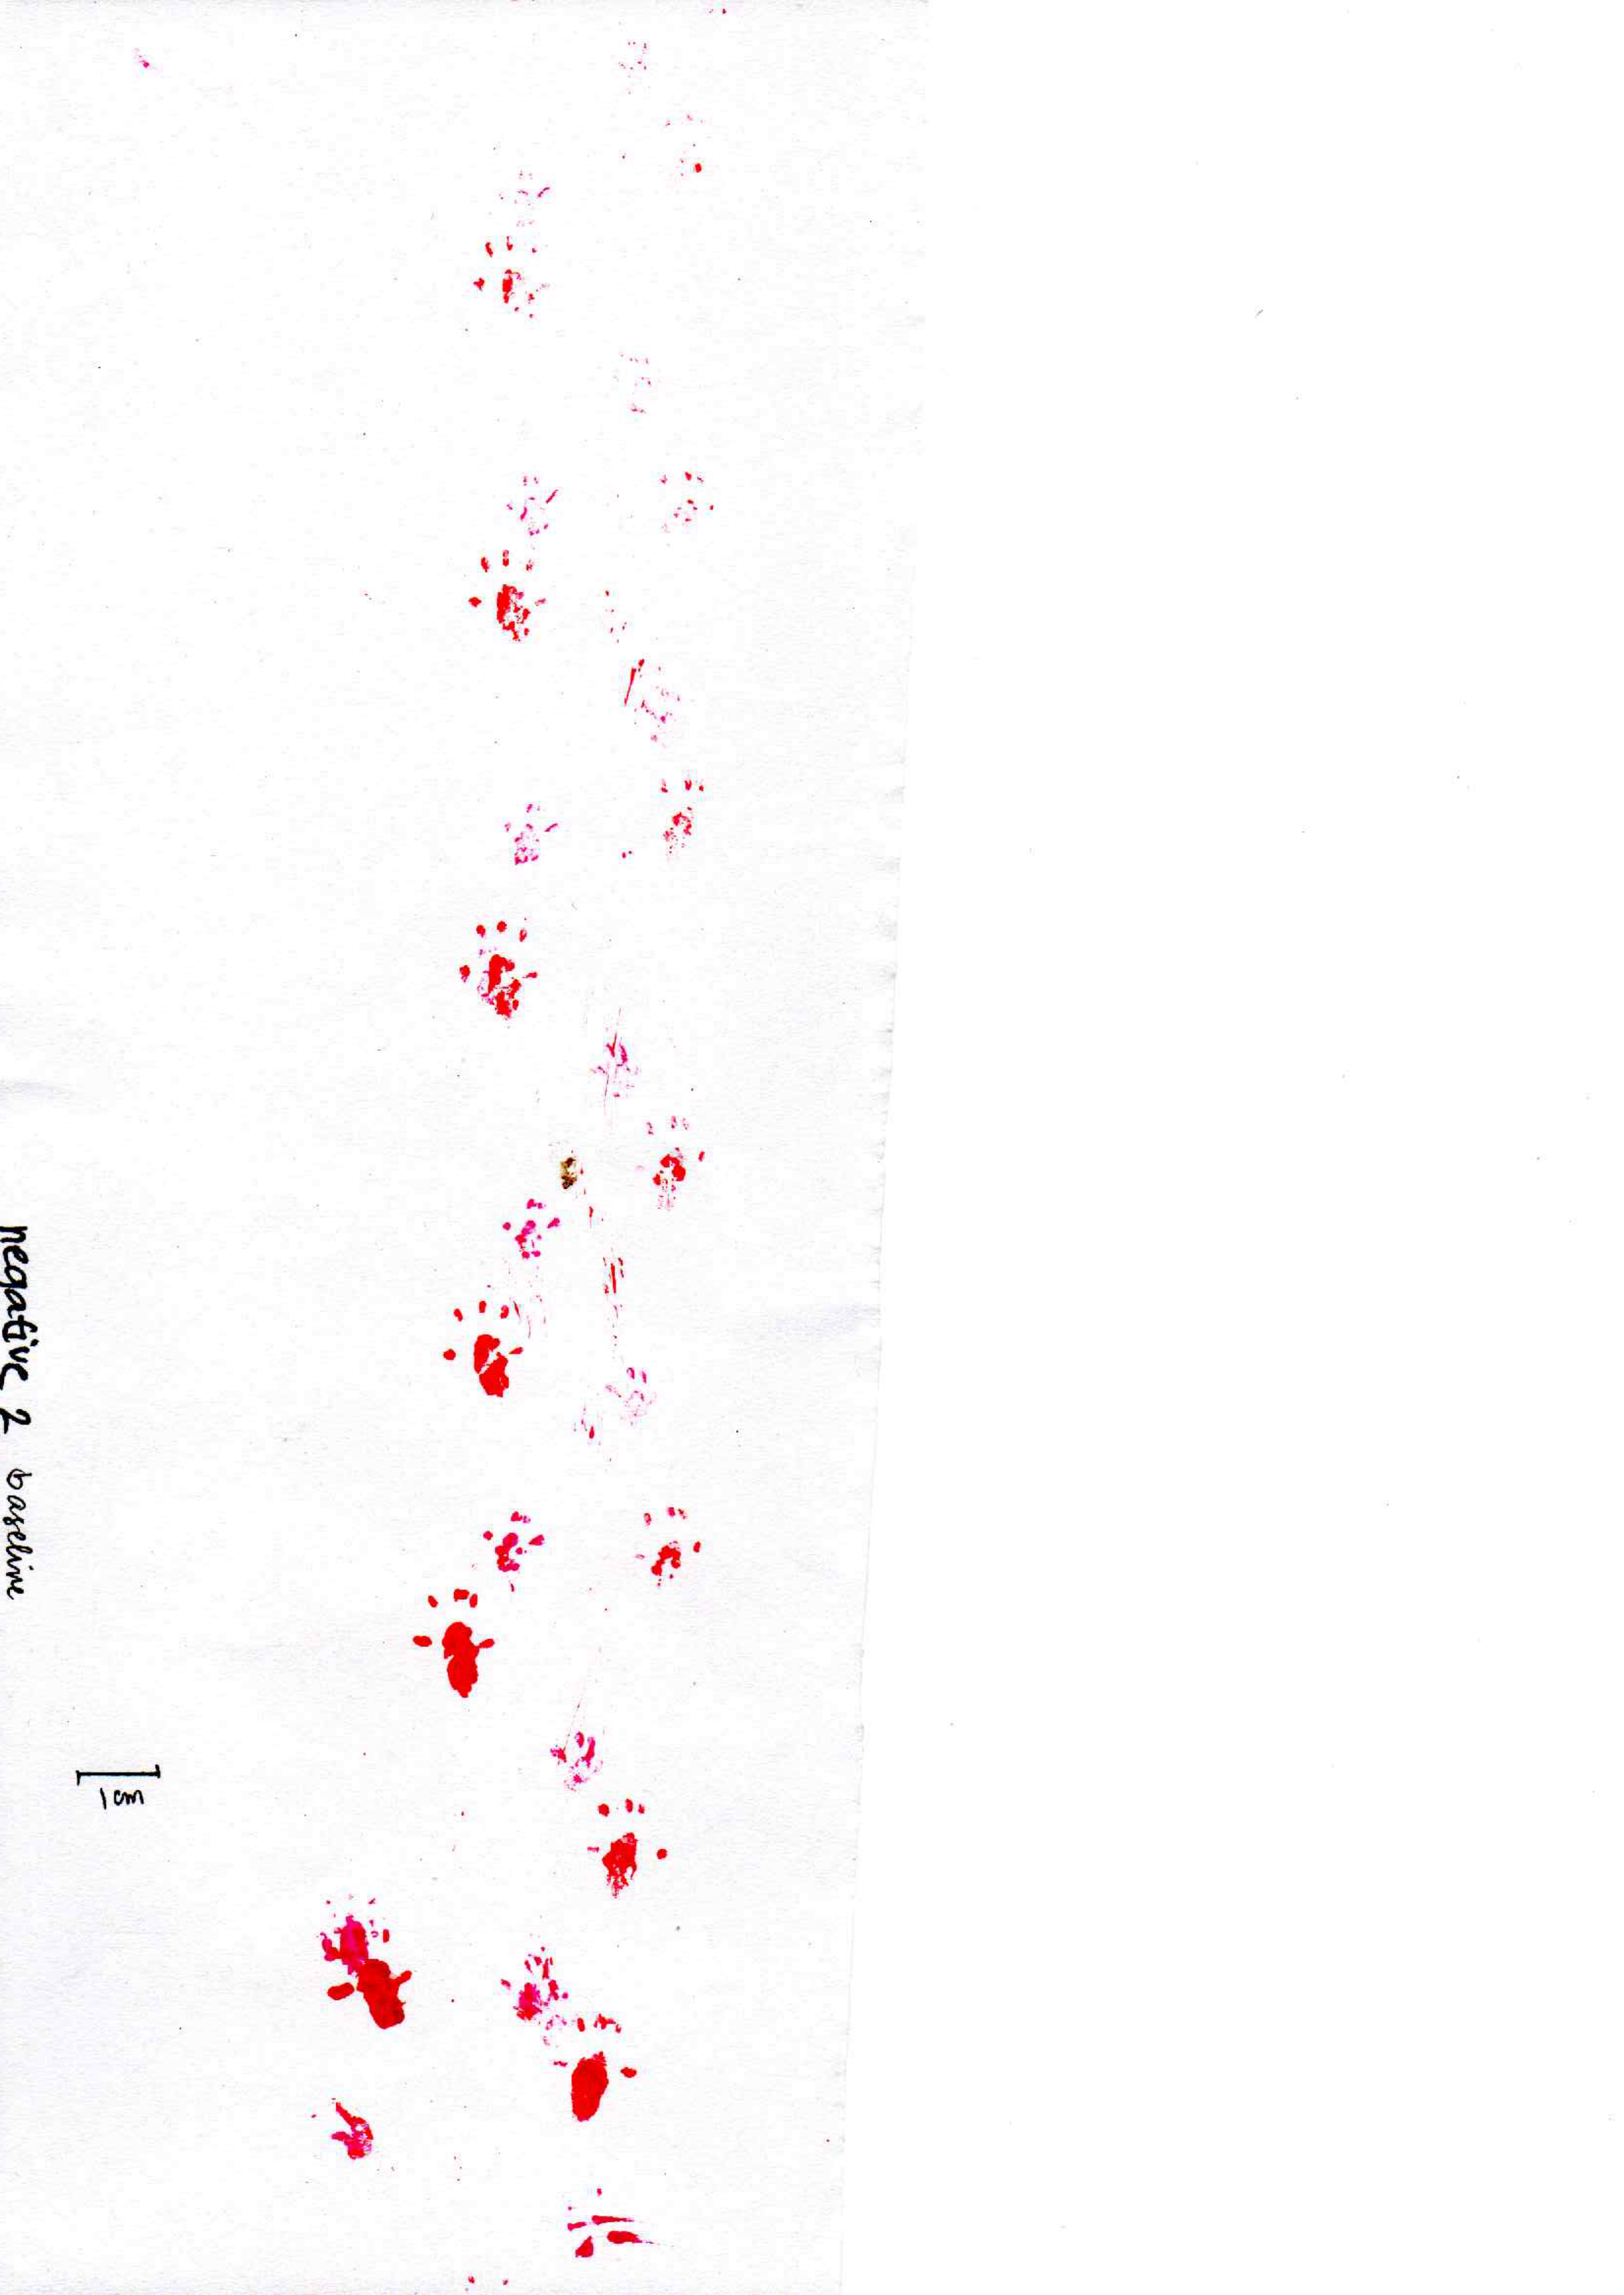 negative 2 baseline
1 cm